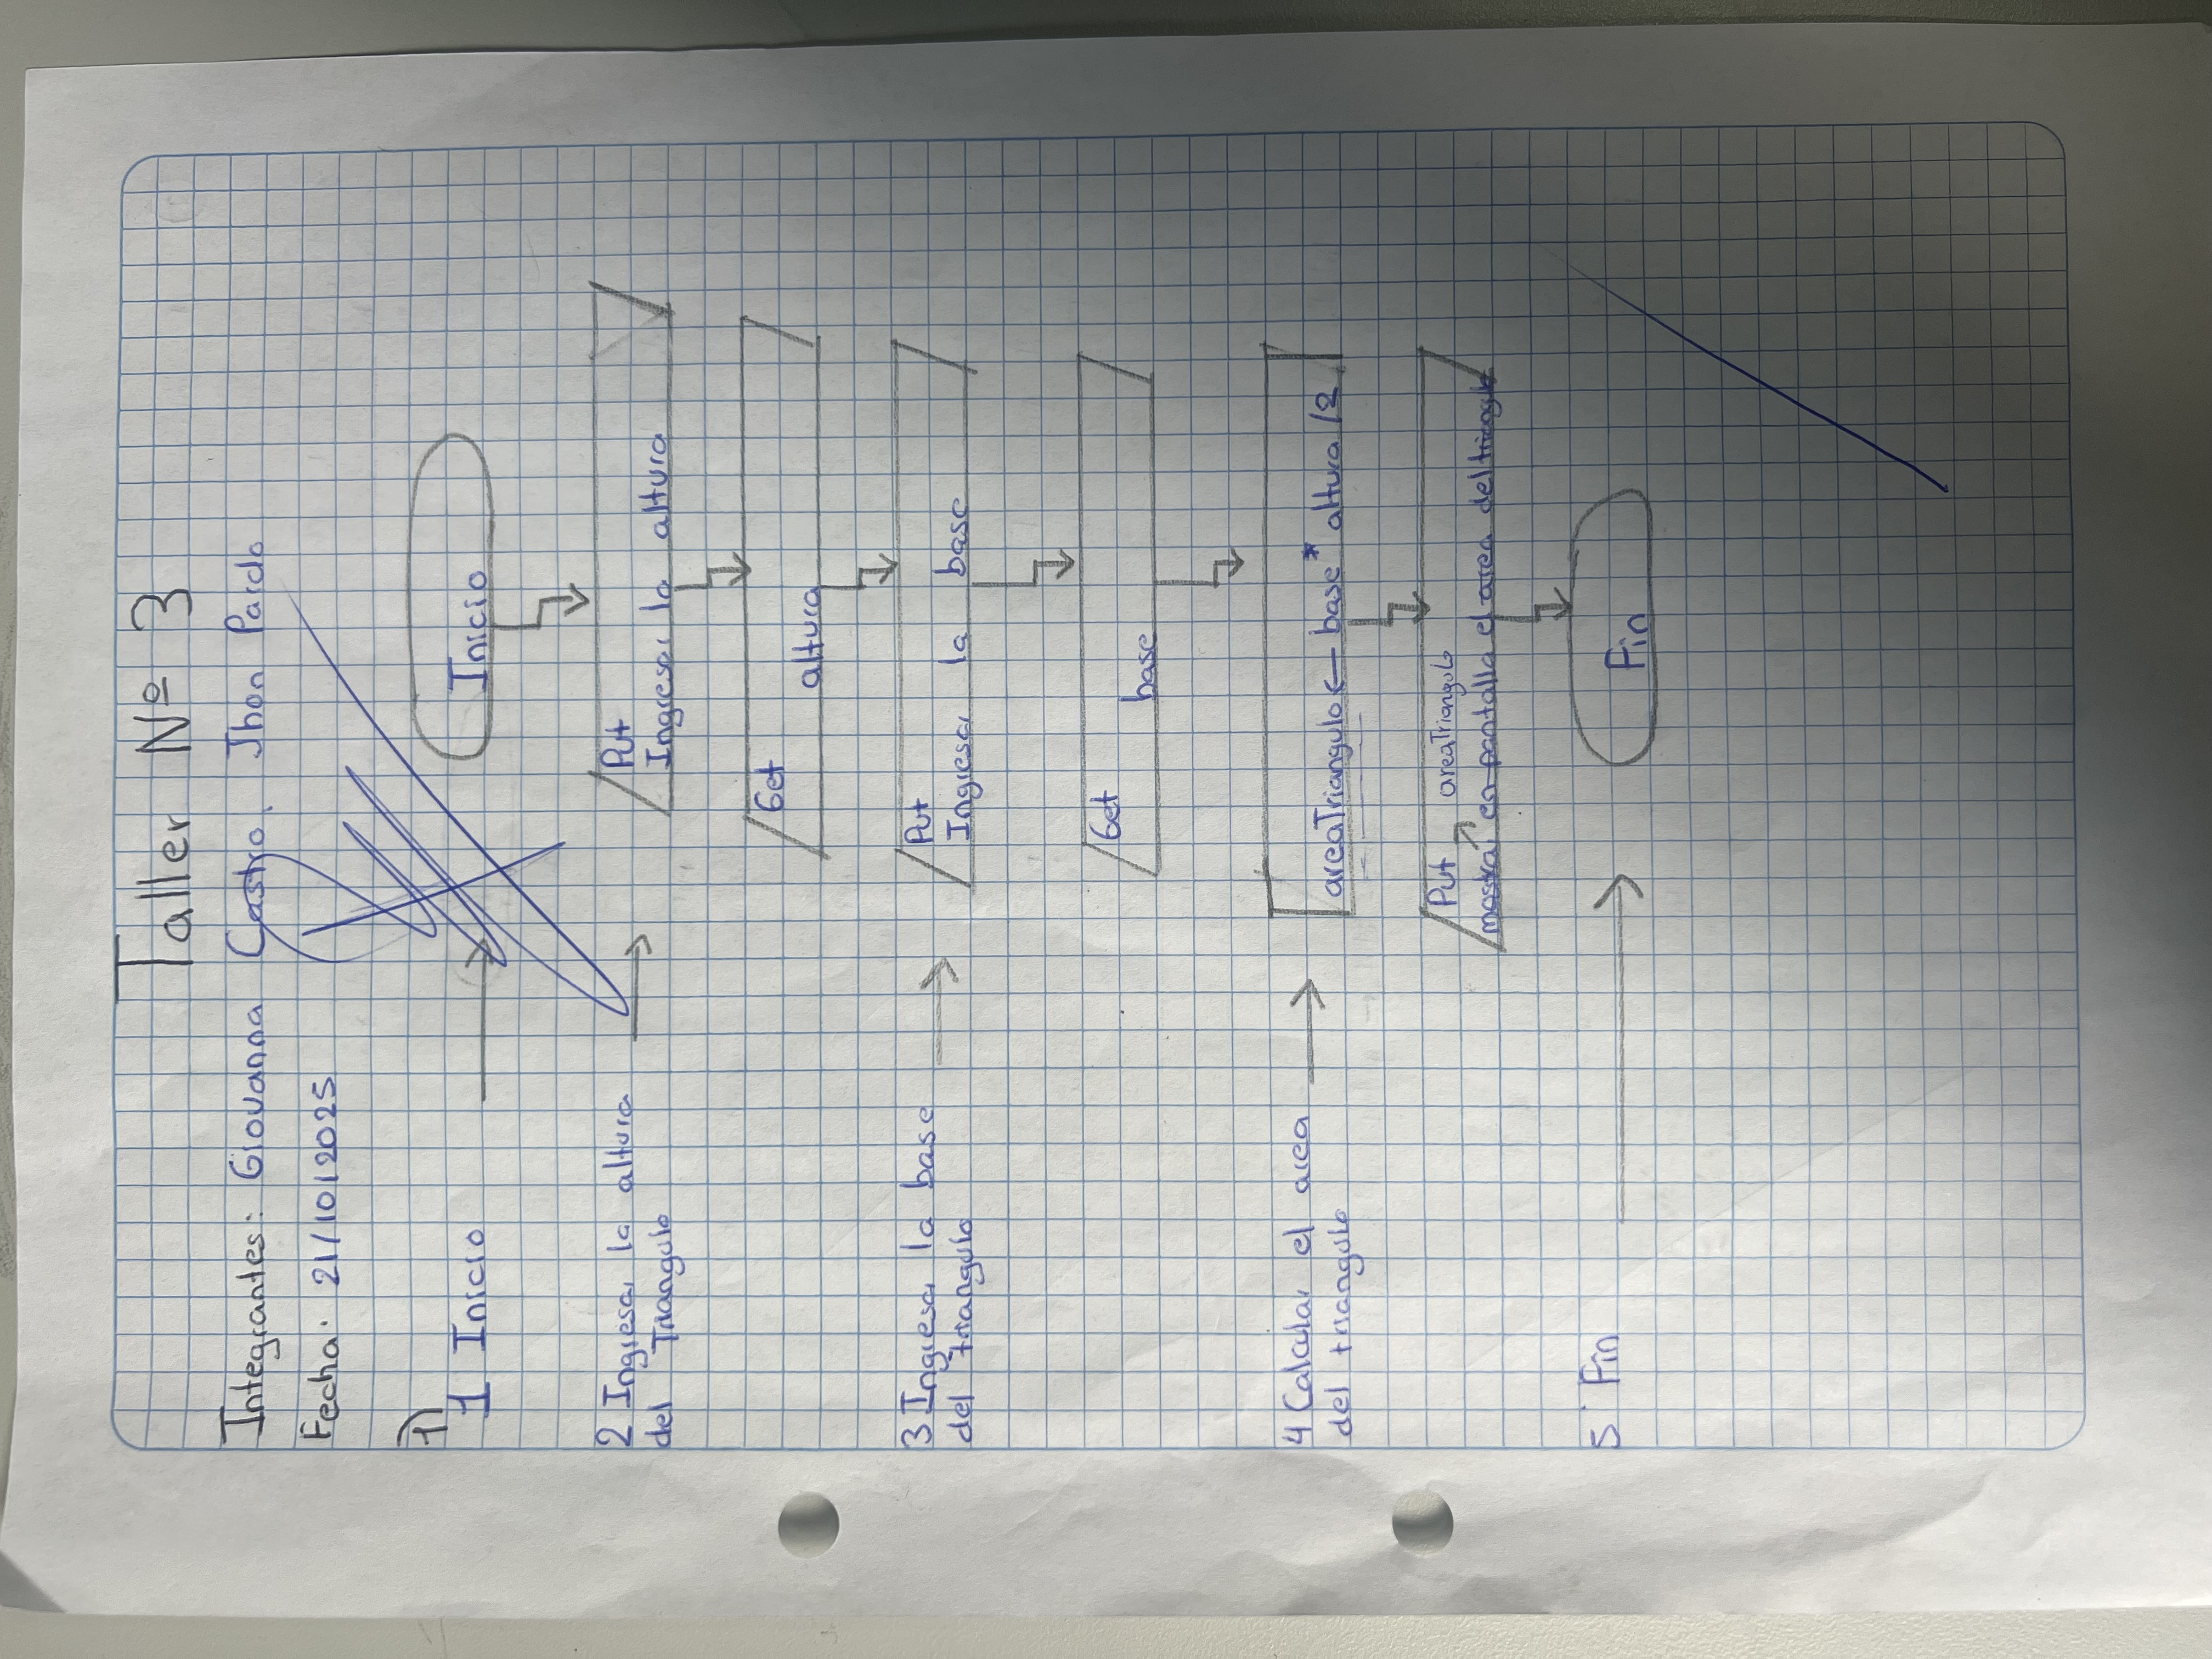 Taller Nº 3
Integrantes: Giovanna Castro. Jhon Pardo
Fecha: 21/10/2025
1)
1 Inicio
Inicio
2 Ingresar la altura
del Triangulo
Put
Ingresar la altura
Get
altura
3 Ingresar la base
del triangulo
Put
Ingresar la base
Get
base
4 Calcular el area
del triangulo
areaTriangulo ← base * altura / 2
Put areaTriangulo
mostrar en pantalla el area del triangulo
5 Fin
Fin